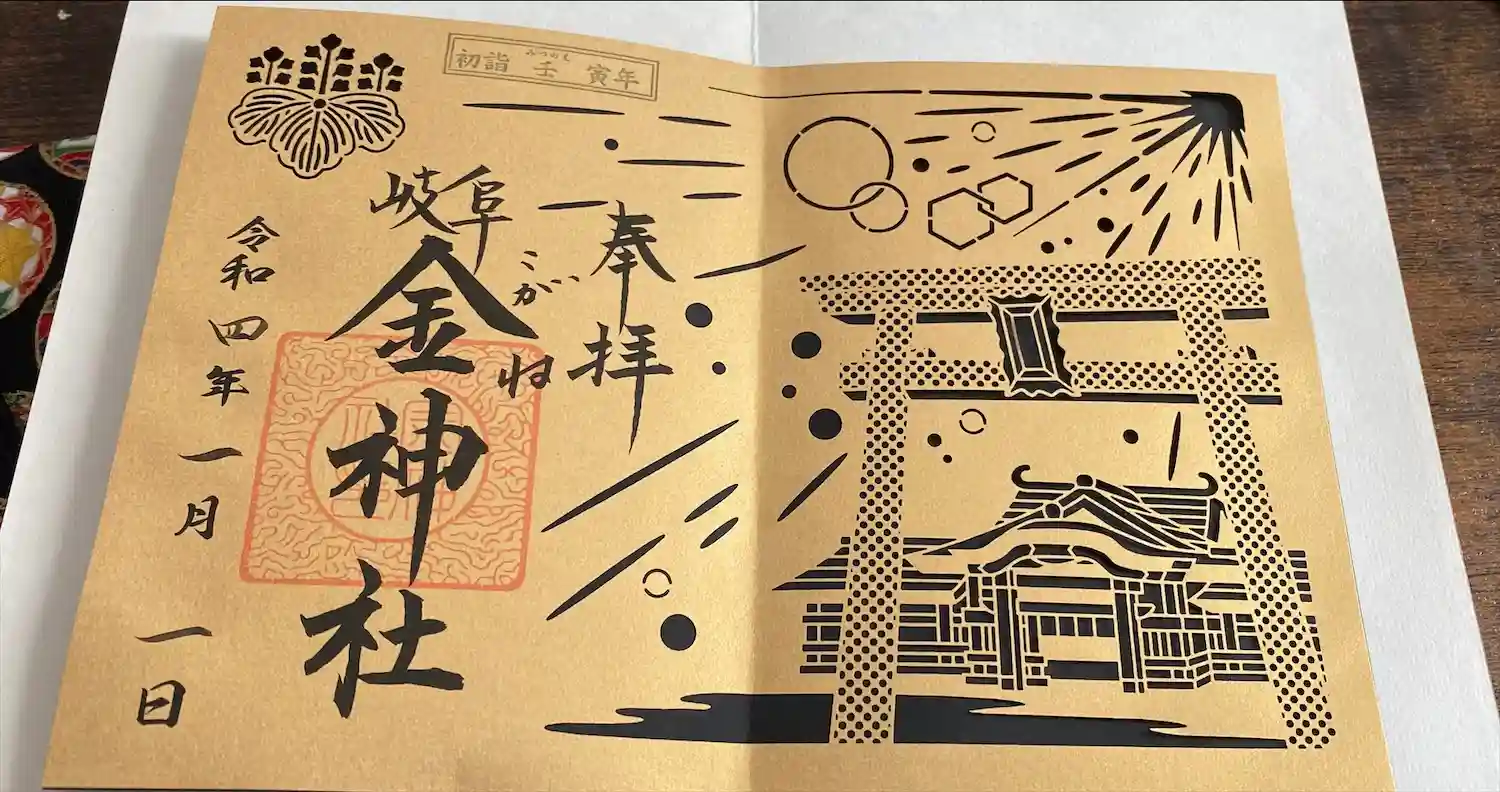 初詣 壬寅年
みづのえ
奉拝
岐阜
金神社
こがね
令和四年一月一日